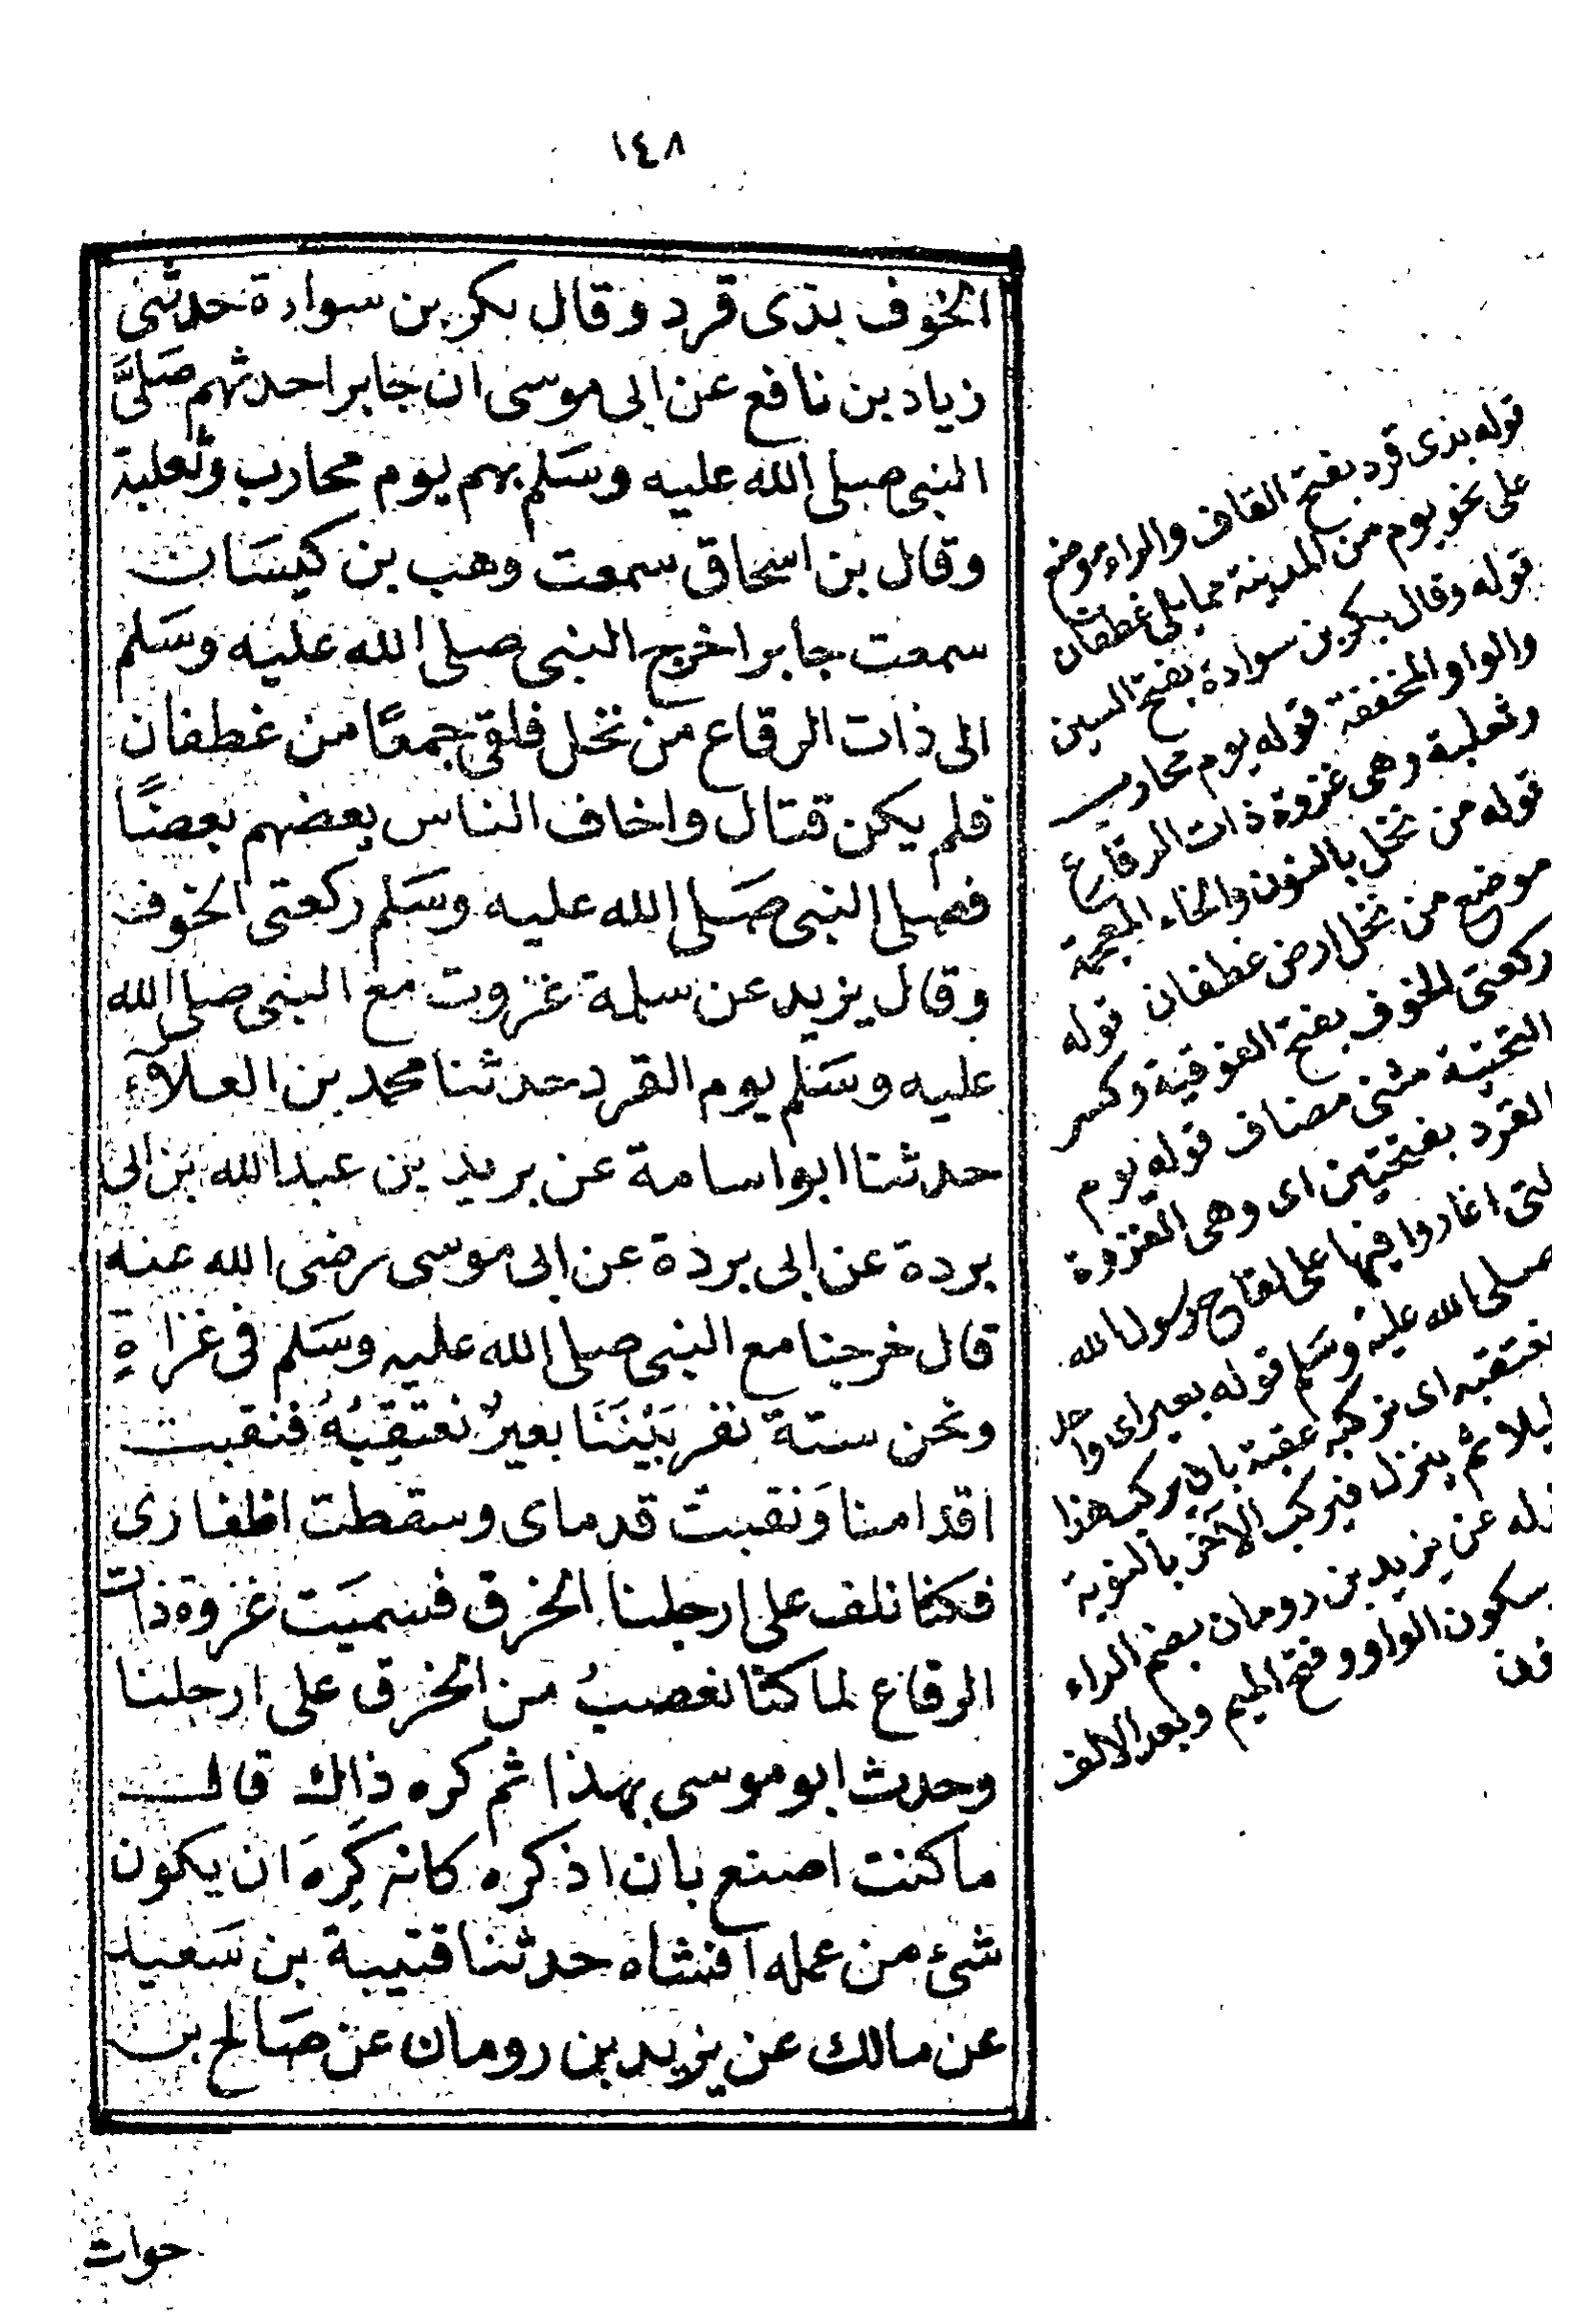 ١٤٨
الخوف بذى قرد وقال بكر بن سوادة حدثنى
زياد بن نافع عن ابى موسى ان جابرا حدثهم صَلَّى
النبى صلى الله عليه وسَلم بهم يوم محارب وثعلبة
وقال بن اسحاق سمعت وهب بن كيسَان
سمعت جابرا خرج النبى صلى الله عليه وسَلم
الى ذات الرقاع من نخل فلقى جمعًا من غطفان
فلم يكن قتال واخاف الناس بعضهم بعضًا
فصلى النبى صَلى الله عليه وسَلم ركعتى الخوف
وقال يزيد عن سلمة غزوت مع النبى صلى الله
عليه وسَلم يوم القرد حدثنا محمد بن العلاء
حدثنا ابو اسامة عن بريد بن عبد الله بن ابى
بردة عن ابى بردة عن ابى موسى رضى الله عنه
قال خرجنا مع النبى صلى الله عليه وسَلم فى غزاةٍ
ونحن ستة نفر بَيْنَنَا بعيرٌ نعتقِبُهُ فنقبت
اقدامنا وَنقبتْ قدماى وسقطت اظفارى
فكنا نلف على ارجلنا الخرق فسميَت غزوة ذات
الرقاع لما كنا نعصبُ من الخرق على ارجلنا
وحدث ابو موسى بهذا ثم كره ذاك قال
ما كنت اصنع بان اذكره كانه كَرِهَ ان يكون
شئ من عمله افشاه حدثنا قتيبة بن سَعيد
عن مالك عن يزيد بن رومان عن صَالح بن
خوات
قوله بذى قرد بفتح القاف والراء موضع
على نحو يوم من المدينة مما يلى غطفان
قوله وقال بكر بن سوادة بفتح السين
والواو المخففة قوله يوم محارب
وثعلبة وهى غزوة ذات الرقاع
قوله من نخل بالنون والخاء المعجمة
موضع من نخل ارض غطفان قوله
ركعتى الخوف بفتح الفوقية وكسر
التحتية مثنى مضاف قوله يوم
القرد بفتحتين اى وهى الغزوة
لتى اغاروا فيها على لقاح رسول الله
صلى الله عليه وسَلم قوله بعير اى واحد
نعتقبه اى نركبه عقبة بان يركب هذا
ليلا ثم ينزل فيركب الاخر بالنوبة
وله عن يزيد بن رومان بضم الراء
سكون الواو وفتح الميم وبعد الالف
نون